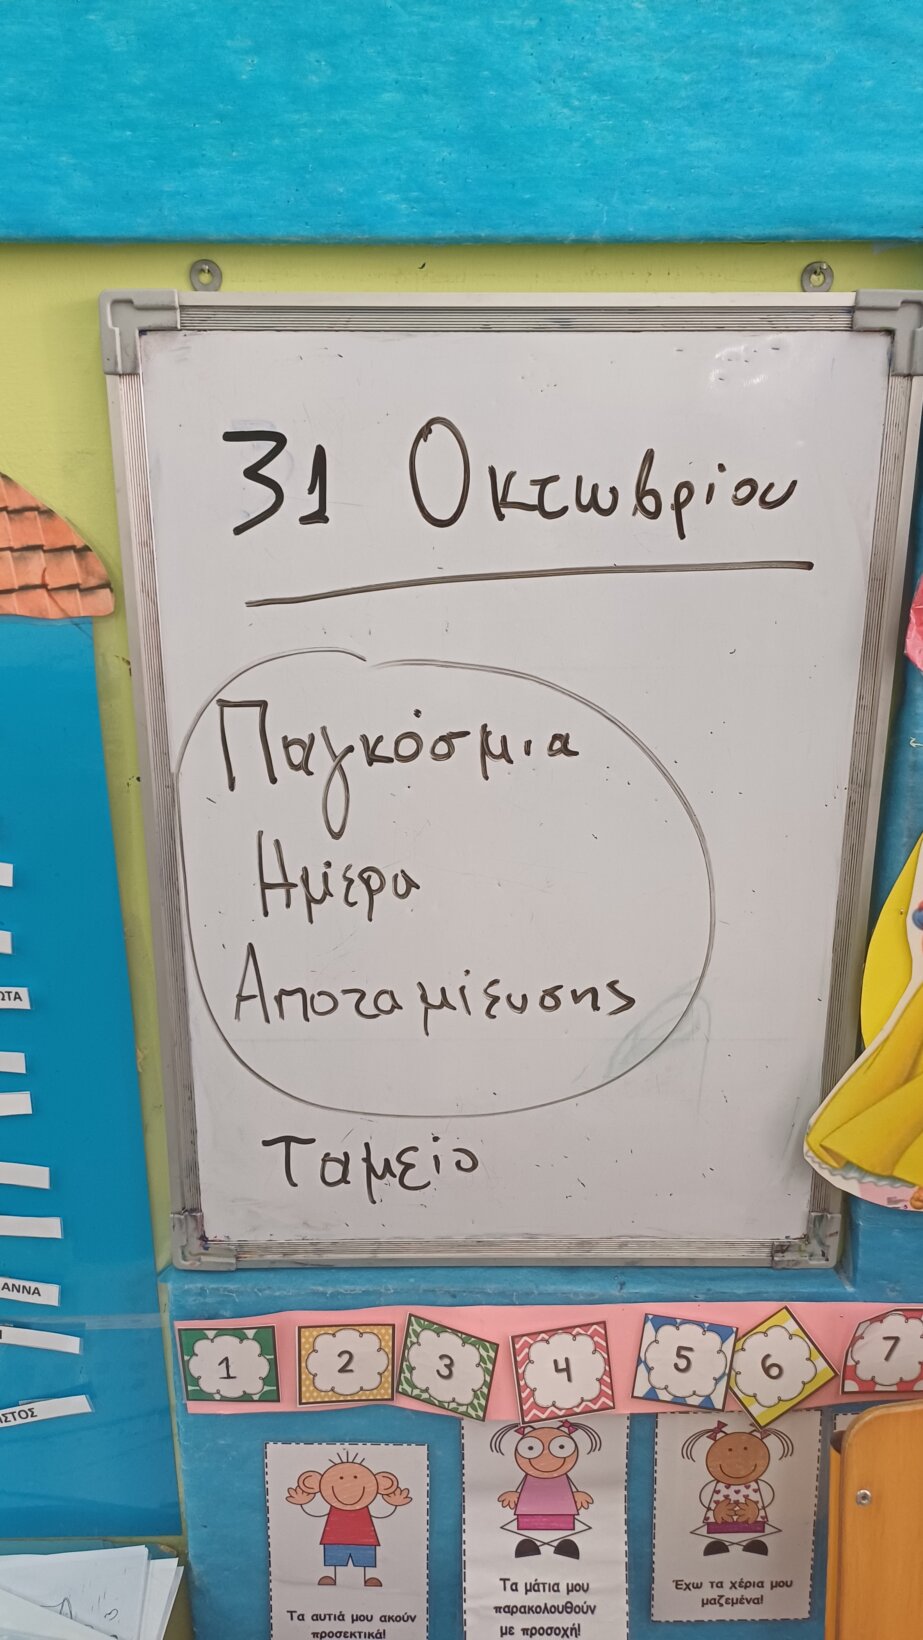 31 Οκτωβρίου
Παγκόσμια
Ημέρα
Αποταμίευσης
Ταμείο
ΩΤΑ
ΑΝΝΑ
ΣΤΟΣ
1 2 3 4 5 6 7
Τα αυτιά μου ακούν
προσεκτικά!
Τα μάτια μου
παρακολουθούν
με προσοχή!
Έχω τα χέρια μου
μαζεμένα!